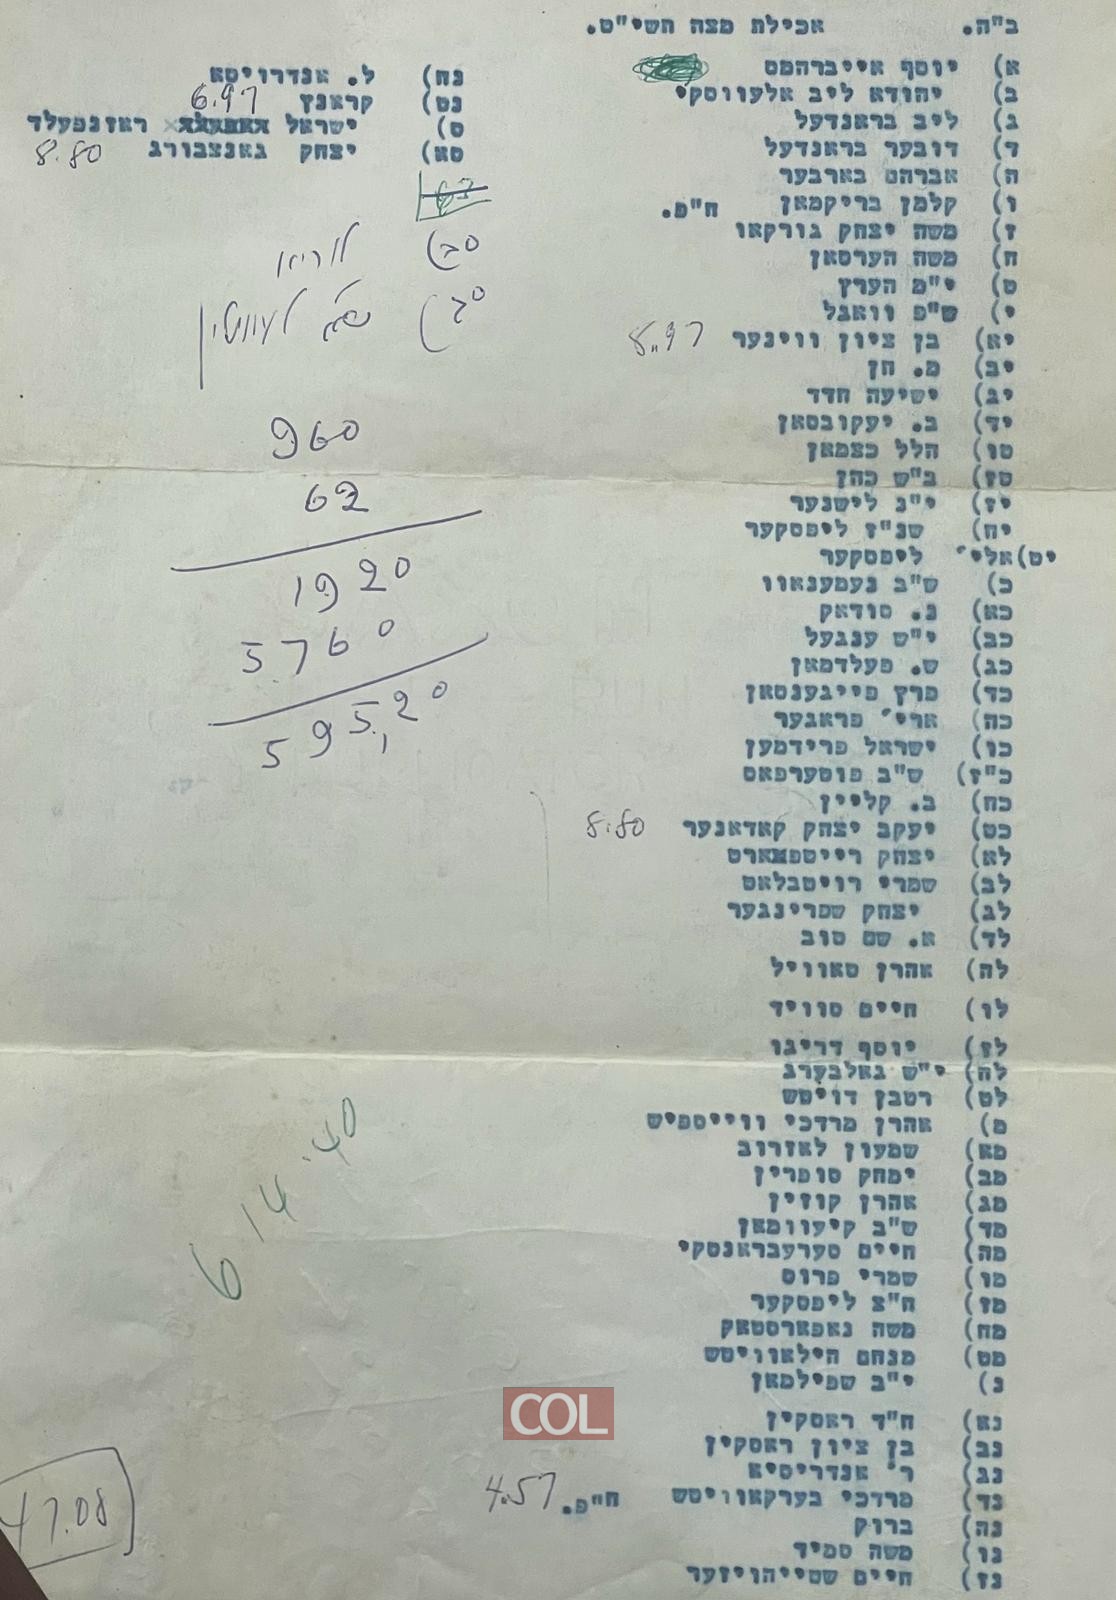 ב"ה. אכילת מצה תשי"ט.
א) יוסף אייברהמס
ב) יהודא ליב אלעווסקי
ג) ליב בראנדעל
ד) דובער בראנדעל
ה) אברהם בארבער
ו) קלמן בריקמאן ח"פ.
ז) משה יצחק גורקאו
ח) משה הערסאן
ט) י"מ הערץ
י) ש"פ וואגל
יא) בן ציון ווינער 8.97
יב) מ. חן
יג) ישיעה חדד
יד) ב. יעקובסאן
טו) הלל כצמאן
טז) ב"ש כהן
יז) י"נ לישנער
יח) שנ"ז ליפסקער
יט) אלי' ליפסקער
כ) ש"ב נעמענאוו
כא) נ. סודאק
כב) י"ש ענגעל
כג) ש. פעלדמאן
כד) פרץ פייגענסאן
כה) ארי' פראגער
כו) ישראל פרידמען
כ"ז) ש"ב פוטערפאס
כח) ב. קליין
כט) יעקב יצחק קאדאנער 8.80
לא) יצחק רייטפארט
לב) שמרי רויטבלאט
לג) יצחק שפרינגער
לד) א. שם טוב
לה) אהרן טאוויל
לו) חיים טוויד
לז) יוסף דריגו
לח) י"ש גאלבערג
לט) רטבן דויטש
מ) אהרן מרדכי ווייספיש
מא) שמעון לאזרוב
מב) ימחק סופרין
מג) אהרן קוזין
מד) ש"ב קיעוומאן
מה) חיים סערעבראנסקי
מו) שמרי פרוס
מז) ח"צ ליפסקער
מח) משה גאפארסטאק
מט) מנחם הילאוויטש
נ) י"ב שפילמאן
נא) ח"ד ראסקין
נב) בן ציון ראסקין
נג) ר' אנדריסיא
נד) מרדכי בערקאוויטש ח"פ. 4.57
נה) ברוק
נו) משה סמיד
נז) חיים שטייהויזער
נח) ל. אנדרויסא
נט) קראנץ 6.97
ס) ישראל ראזנפעלד
סא) יצחק גאנצבורג 8.80
62
סב) לוריא
סג)
960
62
1920
5760
595,20
614.40
47.08
COL